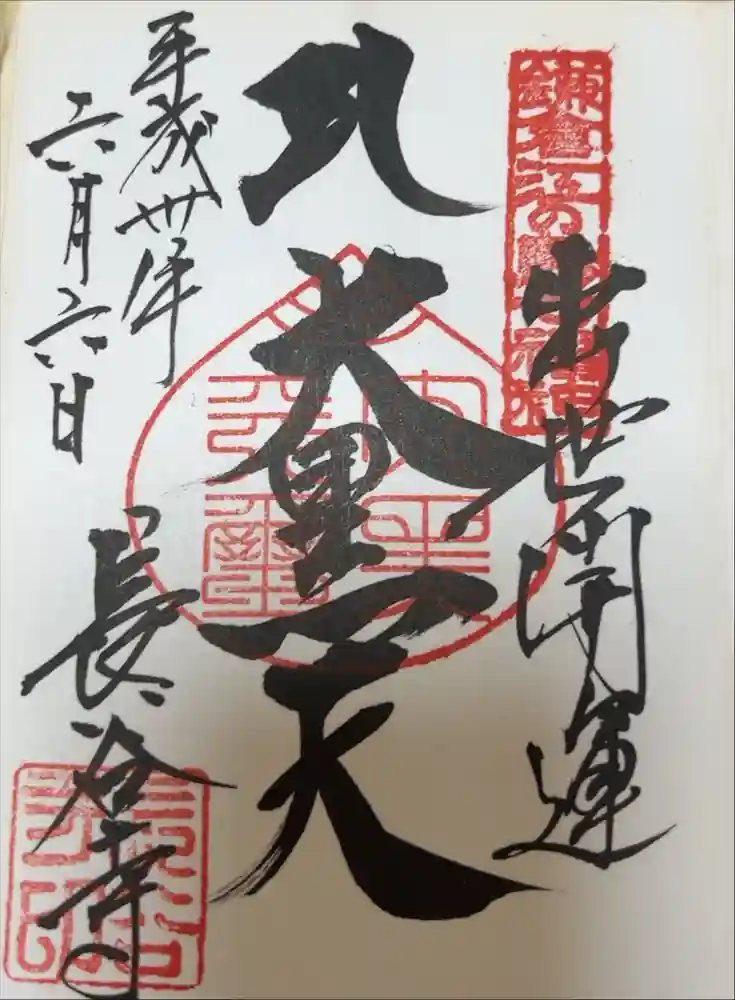 鎌倉江の島七福神
出世開運
大黒天
平成卅年
六月六日
長谷寺